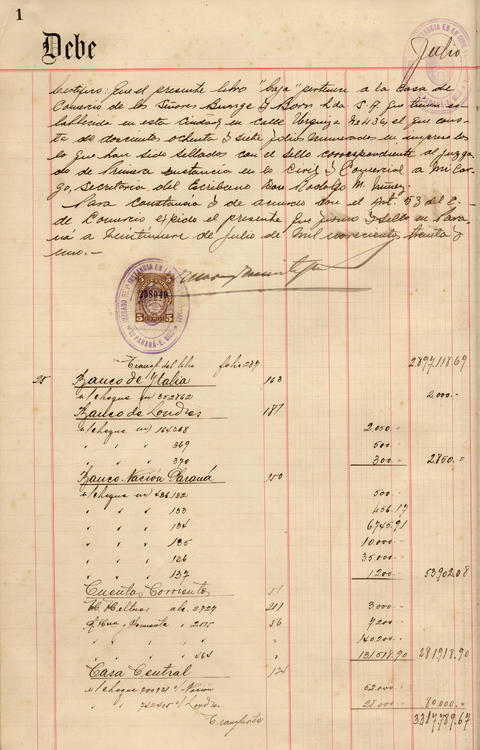 1
Debe
Julio
que el presente libro "Caja" pertenece a la Casa de
Comercio de los Señores Bunge y Born Ltda. S. A. que tienen es-
tablecida en esta Ciudad en calle Urquiza No 436, el que cons-
ta de doscientos ochenta y siete folios numerados en impreso los
que han sido sellados con el sello correspondiente al Juzga-
do de Primera Instancia en lo Civil y Comercial a mi car-
go, Secretaria del Escribano Don Rodolfo M.
Para constancia y de acuerdo con el Art. 53 del C.
de Comercio expido el presente que firmo y sello en Para-
ná a veintinueve de Julio de mil novecientos treinta y
uno.-
258040
5 5
Transp. del libro folio 287 2.897,118.69
28 Banco de Italia 163
s/cheque no 352862 2.000.-
Banco de Londres 187
s/cheque no 164368 2.050.-
" " " 369 500.-
" " " 370 300.- 2850.-
Banco Nación Paraná 250
s/cheque no 436132 500.-
" " " 133 456.17
" " " 134 6745.91
" " " 135 10.000.-
" " " 136 35.000.-
" " " 137 1200.- 53902.08
Cuentas Corrientes
2727 211 3.000.-
2175 56 7200.-
" " " " 140200.-
" " 564 " 131518.90 281918.90
Casa Central 124
s/cheque s/Nación 52000.-
" " s/Londres 28000.- 80000.-
Transporte 3317,789.67